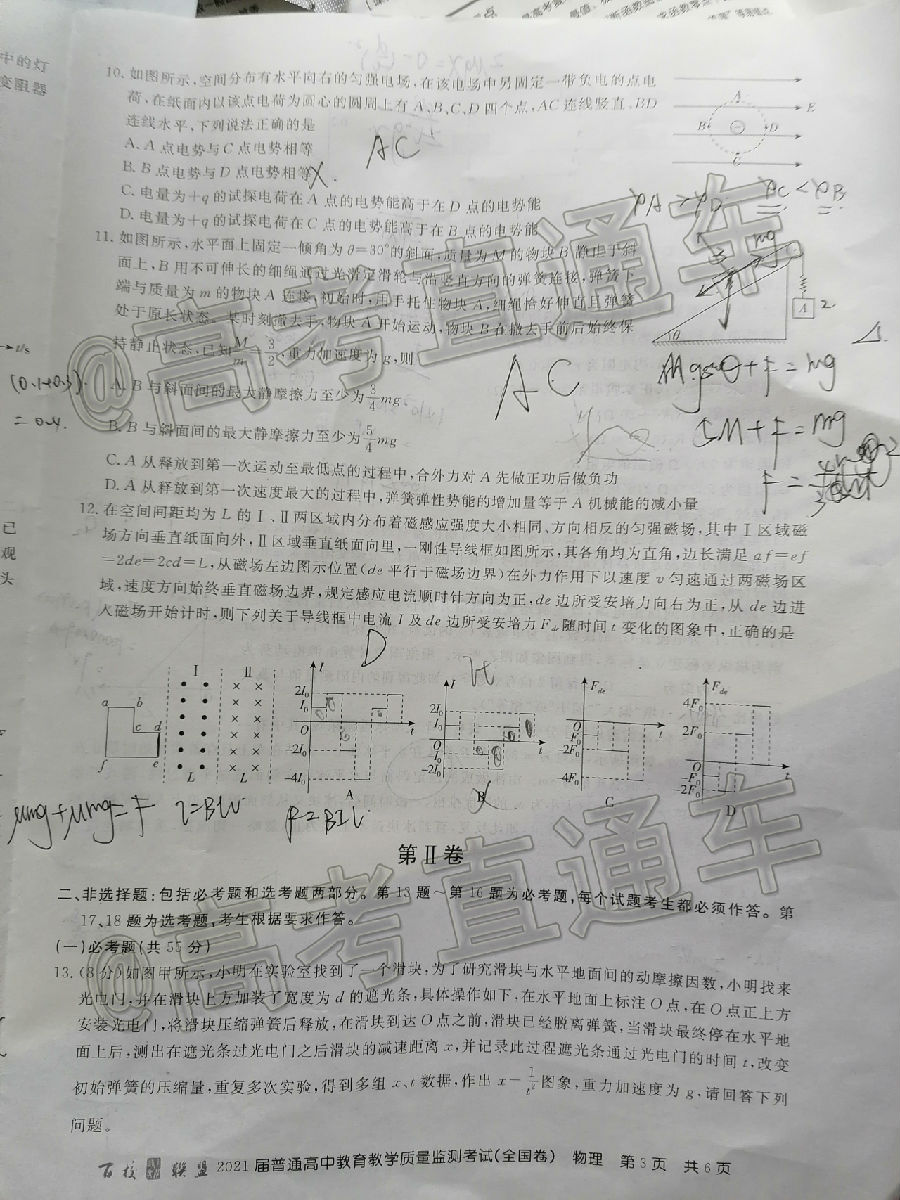 中的灯
变阻器
10. 如图所示,空间分布有水平向右的匀强电场,在该电场中另固定一带负电的点电
荷,在纸面内以该点电荷为圆心的圆周上有A、B、C、D四个点,AC连线竖直,BD
连线水平,下列说法正确的是
A. A点电势与C点电势相等
B. B点电势与D点电势相等
C. 电量为+q的试探电荷在A点的电势能高于在D点的电势能
D. 电量为+q的试探电荷在C点的电势能高于在B点的电势能
A
B
D
C
E
AC
φA>φD
φC<φB
11. 如图所示,水平面上固定一倾角为θ=30°的斜面,质量为M的物块B静止于斜
面上,B用不可伸长的细绳通过光滑定滑轮与沿竖直方向的弹簧连接,弹簧下
端与质量为m的物块A连接,初始时,用手托住物块A,细绳恰好伸直且弹簧
处于原长状态。某时刻撤去手,物块A开始运动,物块B在撤去手前后始终保
持静止状态,已知M/m=3/2,重力加速度为g,则
A. B与斜面间的最大静摩擦力至少为3/4mg
B. B与斜面间的最大静摩擦力至少为5/4mg
C. A从释放到第一次运动至最低点的过程中,合外力对A先做正功后做负功
D. A从释放到第一次速度最大的过程中,弹簧弹性势能的增加量等于A机械能的减小量
θ
A
2
3
mg
AC
t/s
= 0.4
12. 在空间间距均为L的Ⅰ、Ⅱ两区域内分布着磁感应强度大小相同,方向相反的匀强磁场,其中Ⅰ区域磁
场方向垂直纸面向外,Ⅱ区域垂直纸面向里,一刚性导线框如图所示,其各角均为直角,边长满足af=ef
=2de=2cd=L,从磁场左边图示位置(de平行于磁场边界)在外力作用下以速度v匀速通过两磁场区
域,速度方向始终垂直磁场边界,规定感应电流顺时针方向为正,de边所受安培力向右为正,从de边进
入磁场开始计时,则下列关于导线框中电流I及de边所受安培力Fde随时间t变化的图象中,正确的是
已
观
头
D
a b c d e f
Ⅰ Ⅱ
L L
I 2I₀ I₀ O -2I₀ -4I₀ t A
I 2I₀ I₀ O -2I₀ t B
Fde O -2F₀ 4F₀ t C
Fde 4F₀ 2F₀ O -F₀ -2F₀ t D
μmg+μmg=F
第Ⅱ卷
二、非选择题:包括必考题和选考题两部分。第13题~第16题为必考题,每个试题考生都必须作答。第
17、18题为选考题,考生根据要求作答。
(一)必考题(共55分)
13. (8分)如图甲所示,小明在实验室找到了一个滑块,为了研究滑块与水平地面间的动摩擦因数,小明找来
光电门,并在滑块上方加装了宽度为d的遮光条,具体操作如下,在水平地面上标注O点,在O点正上方
安装光电门,将滑块压缩弹簧后释放,在滑块到达O点之前,滑块已经脱离弹簧,当滑块最终停在水平地
面上后,测出在遮光条过光电门之后滑块的减速距离x,并记录此过程遮光条通过光电门的时间t,改变
初始弹簧的压缩量,重复多次实验,得到多组x、t数据,作出x-1/t²图象,重力加速度为g,请回答下列
问题。
百校联盟 2021届普通高中教育教学质量监测考试(全国卷) 物理 第3页 共6页
@高考直通车
@高考直通车